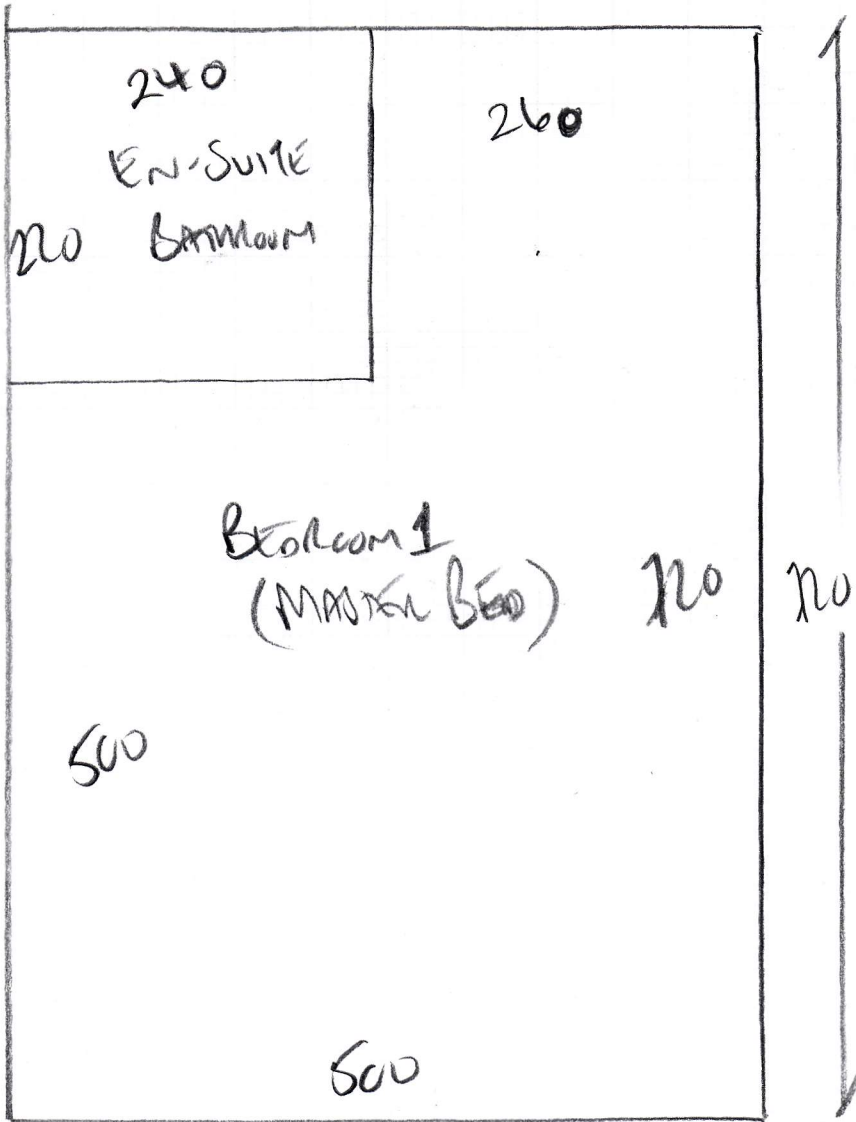 240
260
EN-SUITE
220 BATHROOM
BEDROOM 1
(MASTER BED)
720
720
500
500